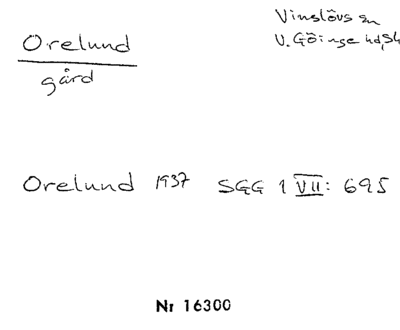 Orelund
gård
Vinslövs sn
V. Göinge hd, Sk
Orelund 1937 SGG 1 VII: 695
Nr 16300